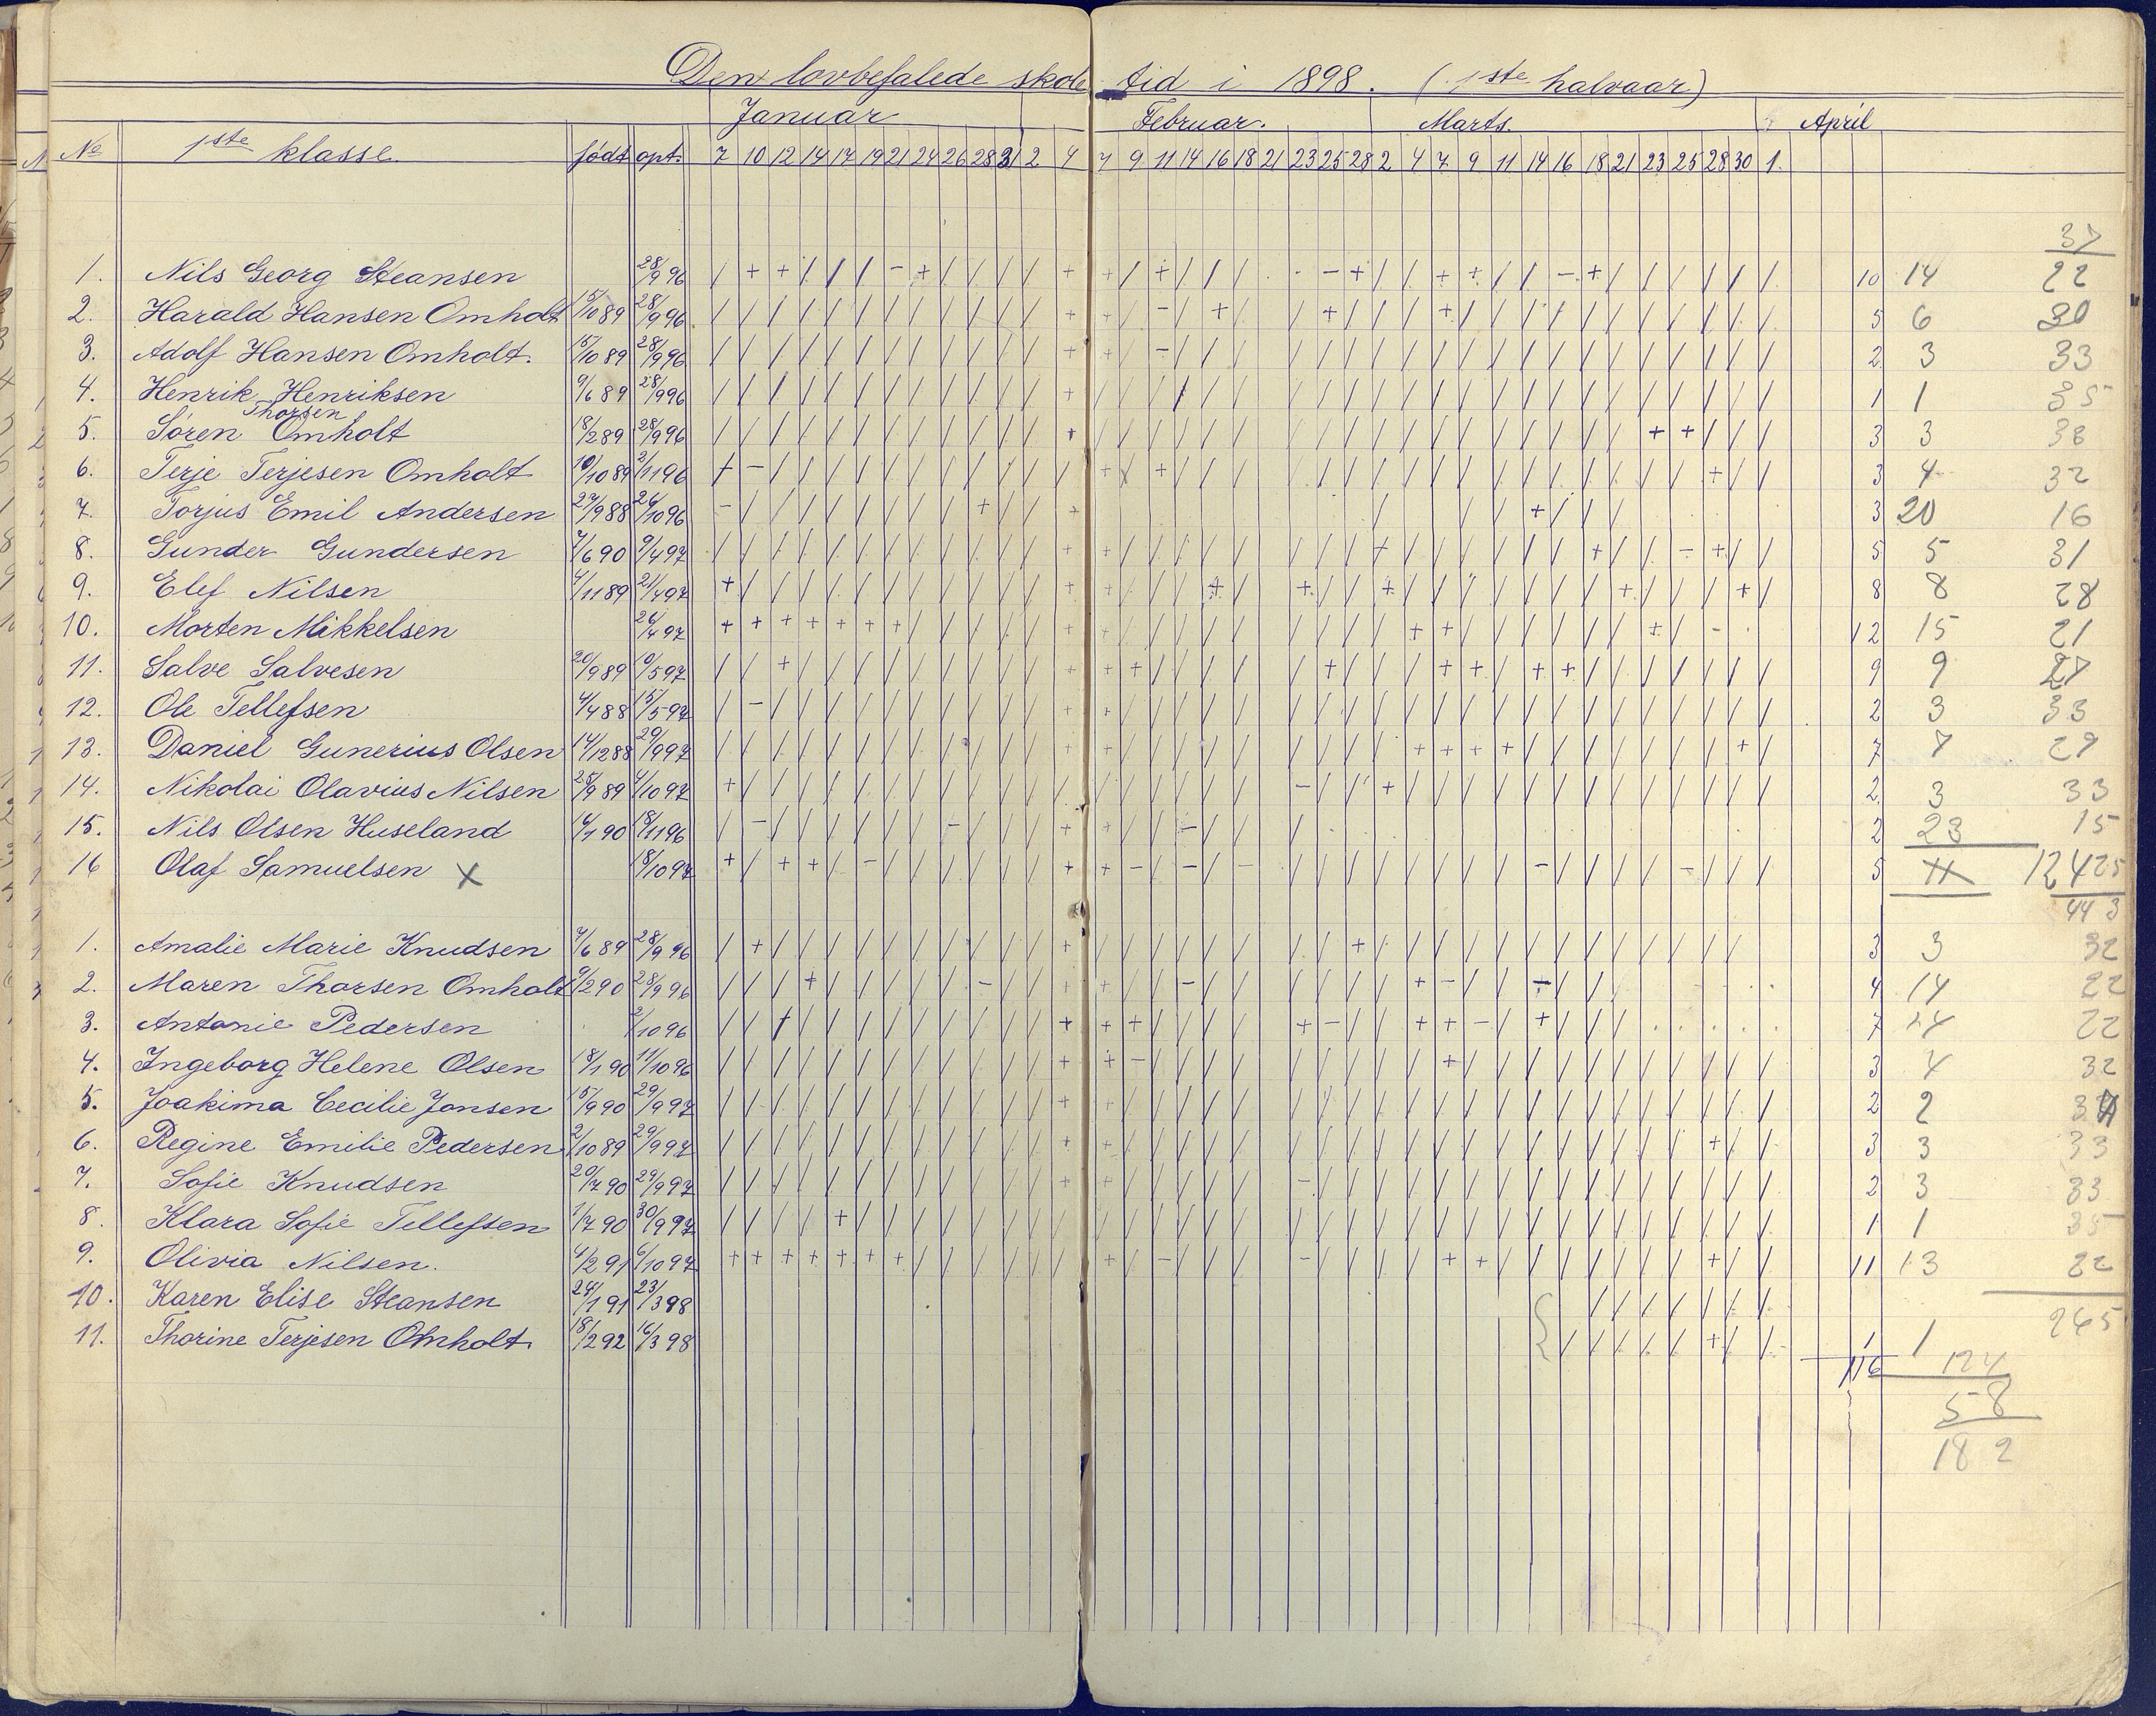 Den lovbefalede skole tid i 1898. (1ste halvaar)
Januar Februar. Marts. April
No 1ste klasse. født opt. 7 10 12 14 17 19 21 24 26 28 31 2 4 7 9 11 14 16 18 21 23 25 28 2 4 7 9 11 14 16 18 21 23 25 28 30 1.
37
1. Nils Georg Steansen 28/9 96 / + + / / / - + / / / / + + / + / / / - + / / + + / / - + / / / / / / 10 14 22
2. Harald Hansen Omholt 15/10 89 28/9 96 / / / / / / / / / / / / + + / - / + / / + / / / + / / / / / / / / / / / / 5 6 30
3. Adolf Hansen Omholt. 15/10 89 28/9 96 / / / / / / / / / / / / + + / - / / / / / / / / / / / / / / / / / / / / / 2 3 33
4. Henrik Henriksen 9/6 89 28/9 96 / / / / / / / / / / / / + / / / / / / / / / / / / / / / / / / / / / / / / 1 1 35
5. Søren Thorsen Omholt 18/2 89 28/9 96 / / / / / / / / / / / / + / / / / / / / / / / / / / / / / / / + + / / / 3 3 33
6. Terje Terjesen Omholt 10/10 89 2/11 96 + - / / / / / / / / / / / + / + / / / / / / / / / / / / / / / / / / + / / 3 4 32
7. Torjus Emil Andersen 27/9 88 26/10 96 - / / / / / / / / + / / + / / / + / / / 3 20 16
8. Gunder Gundersen 7/6 90 9/4 97 / / / / / / / / / / / / + + / / / / / / / / + / / / / / / + / / - + / / 5 5 31
9. Elef Nilsen 4/11 89 21/4 97 + / / / / / / / / / / / + + / / / + / + / / + / / / / / / / + / / / + / 8 8 28
10. Morten Mikkelsen 26/4 97 + + + + + + + / / / / / + + / / / / / / / / / + + / / / / / / + / - 12 15 21
11. Salve Salvesen 20/9 89 10/5 97 / / + / / / / / / / / / + + + / / / / / + / / / + + / + + / / / / / / / 9 9 27
12. Ole Tellefsen 4/4 88 15/5 97 / - / / / / / / / / / / + + / / / / / / / / / / / / / / / / / / / / / / / 2 3 33
13. Daniel Gunerius Olsen 14/12 88 29/9 97 / / / / / / / / / / / / + + / / / / / / / / / + + + + / / / / / / / + / 7 7 29
14. Nikolai Olavius Nilsen 25/9 89 4/10 97 + / / / / / / / / / / / / / / / / / / - / / + / / / / / / / / / / / / / 2 3 33
15. Nils Olsen Huseland 14/1 90 18/11 96 / - / / / / / / - / / / + + / / - / / / 2 23 15
16 Olaf Samuelsen X 18/10 97 + / + + / - / / / / / / + + - / - / - / / / / / / / / - / / / / - / / / 5 12 425
443
1. Amalie Marie Knudsen 7/6 89 28/9 96 / + / / / / / / / / / / + / / / / / / / / + / / / / / / / / / / / / / 3 3 32
2. Maren Thorsen Omholt 9/2 90 28/9 96 / / / + / / / / / - / / + + / / - / / / / / / + - / / - / / 4 14 22
3. Antonie Pedersen 2/10 96 / / / / / / / / / / / / + + + / / / / + - / / + + - / + / / / 7 14 22
4. Ingeborg Helene Olsen 18/1 90 11/10 96 / / / / / / / / / / / / + + - / / / / / / / / / + / / / / / / / / / / / 3 4 32
5. Joakima Cecilie Jonsen 15/9 90 29/9 97 / / / / / / / / / / / / + + / / / / / / / / / / / / / / / / / / / / / / / 2 2 34
6. Regine Emilie Pedersen 2/10 89 29/9 97 / / / / / / / / / / / / + + / / / / / / / / / / / / / / / / / / / / + / / 3 3 33
7. Sofie Knudsen 20/7 90 29/9 97 / / / / / / / / / / / / + + / / / / / - / / / / / / / / / / / / / / / / / 2 3 33
8. Klara Sofie Tellefsen 1/7 90 30/9 97 / / / / + / / / / / / / / / / / / / / / / / / / / / / / / / / / / / / / / 1 1 35
9. Olivia Nilsen. 4/2 91 6/10 97 + + + + + + + / / / / / / + / - / / / - / / / / + + / / / / / / / + / / 11 13 22
10. Karen Elise Steansen 24/1 91 23/3 98 / / / / / / /
11. Thorine Terjesen Omholt. 18/2 92 16/3 98 / / / / / + / / 1 1 265
116 124
58
182